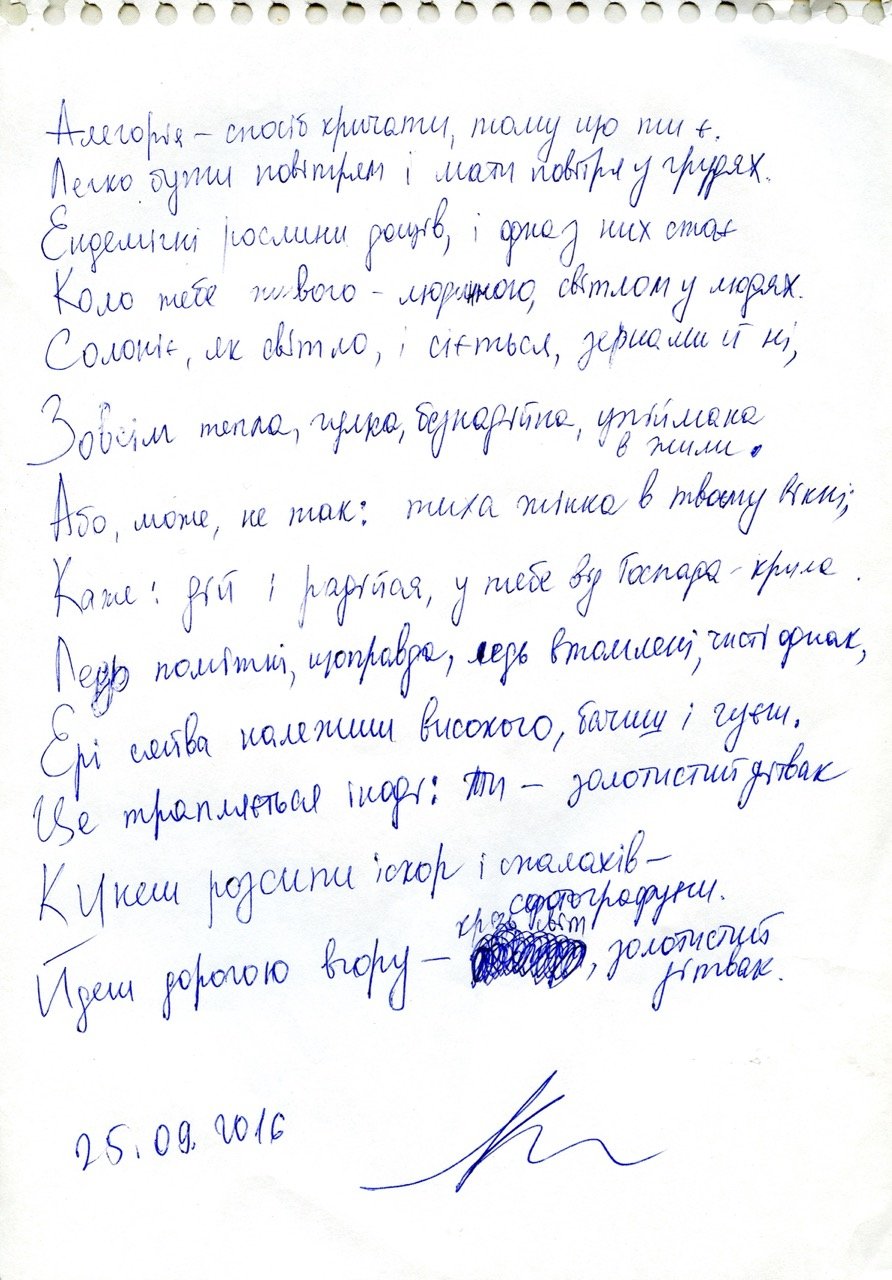 Алегорія – спосіб кричати, тому що ти є.
Легко бути повітрям і мати повітря у грудях.
Ендемічні рослини дощів, і одна з них стає
Коло тебе живого – людинного, світлом у людях.
Солоніє, як світло, і сіється, зернами й ні,
Зовсім тепла, гулка, безнадійна, упіймана
в жили.
Або, може, не так: тиха жінка в твому вікні;
Каже: дій і радійся, у тебе від Господа – крила.
Ледь помітні, щоправда, ледь втомлені, чисті однак,
Ері сяйва належиш високого, бачиш і чуєш.
Це трапляється іноді: ти – золотистий дітвак
Кинеш розсипи іскор і спалахів –
сфотографуєш.
крізь світ
Йдеш дорогою вгору – , золотистий
дітвак.
25.09.2016